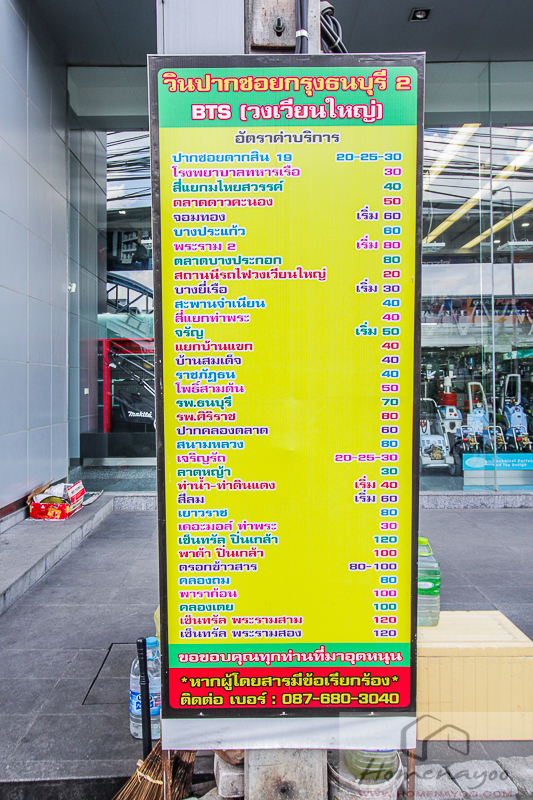 วินปากซอยกรุงธนบุรี 2
BTS (วงเวียนใหญ่)
อัตราค่าบริการ
ปากซอยตากสิน 19 20-25-30
โรงพยาบาลทหารเรือ 30
สี่แยกมไหยสวรรค์ 40
ตลาดดาวคะนอง 50
จอมทอง เริ่ม 60
บางประแก้ว 60
พระราม 2 เริ่ม 80
ตลาดบางประกอก 80
สถานนีรถไฟวงเวียนใหญ่ 20
บางยี่เรือ เริ่ม 30
สะพานจำเนียน 40
สี่แยกท่าพระ 40
จรัญ เริ่ม 50
แยกบ้านแขก 40
บ้านสมเด็จ 40
ราชภัฏธน 40
โพธิ์สามต้น 50
รพ.ธนบุรี 70
รพ.ศิริราช 80
ปากคลองตลาด 60
สนามหลวง 80
เจริญรัถ 20-25-30
ลาดหญ้า 30
ท่าน้ำ-ท่าดินแดง เริ่ม 40
สีลม เริ่ม 60
เยาวราช 80
เดอะมอล์ ท่าพระ 30
เซ็นทรัล ปิ่นเกล้า 120
พาต้า ปิ่นเกล้า 100
ตรอกข้าวสาร 80-100
คลองถม 80
พาราก้อน 100
คลองเตย 100
เซ็นทรัล พระรามสาม 120
เซ็นทรัล พระรามสอง 120
ขอขอบคุณทุกท่านที่มาอุดหนุน
*หากผู้โดยสารมีข้อเรียกร้อง*
ติดต่อ เบอร์ : 087-680-3040
Makita
Homenayoo
WWW.HOMENAYOO.COM